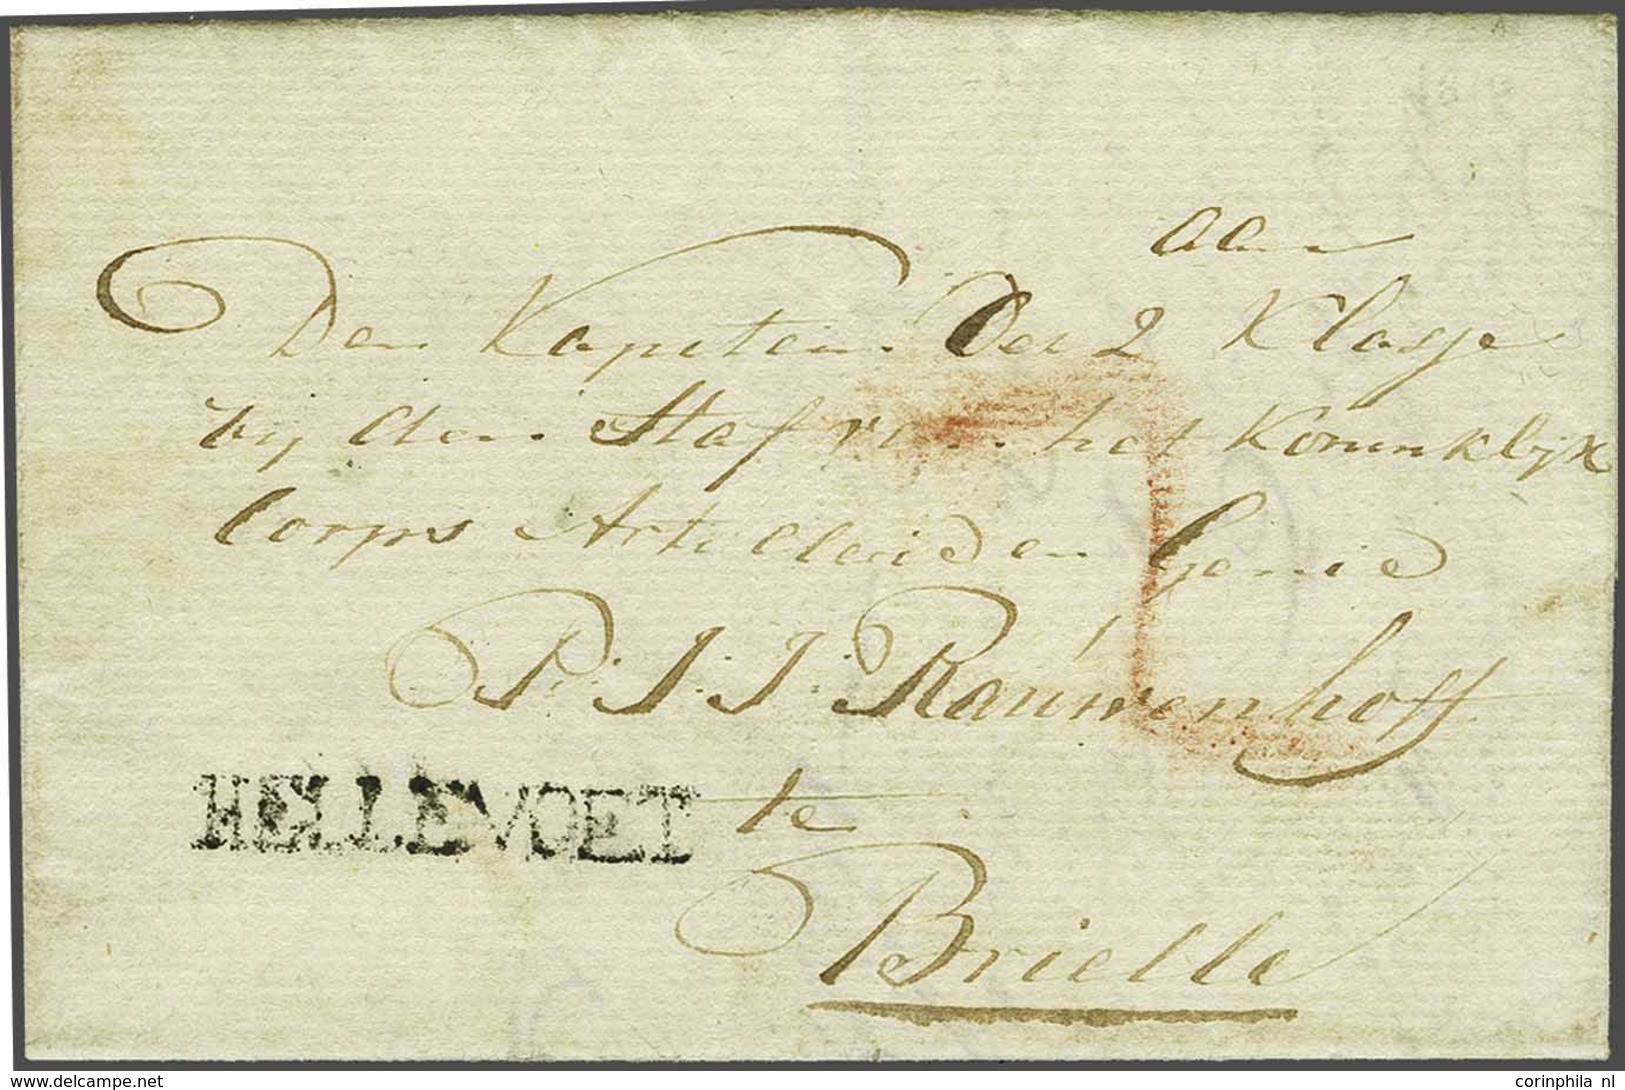 aan
Den Kapitein Der 2 Klasse
bij den Staf van het Koninklijk
Corps Artilleri en Genie
P: J: J: Rauwenhoff
HELLEVOET te
Brielle
delcampe.net
corinphila nl